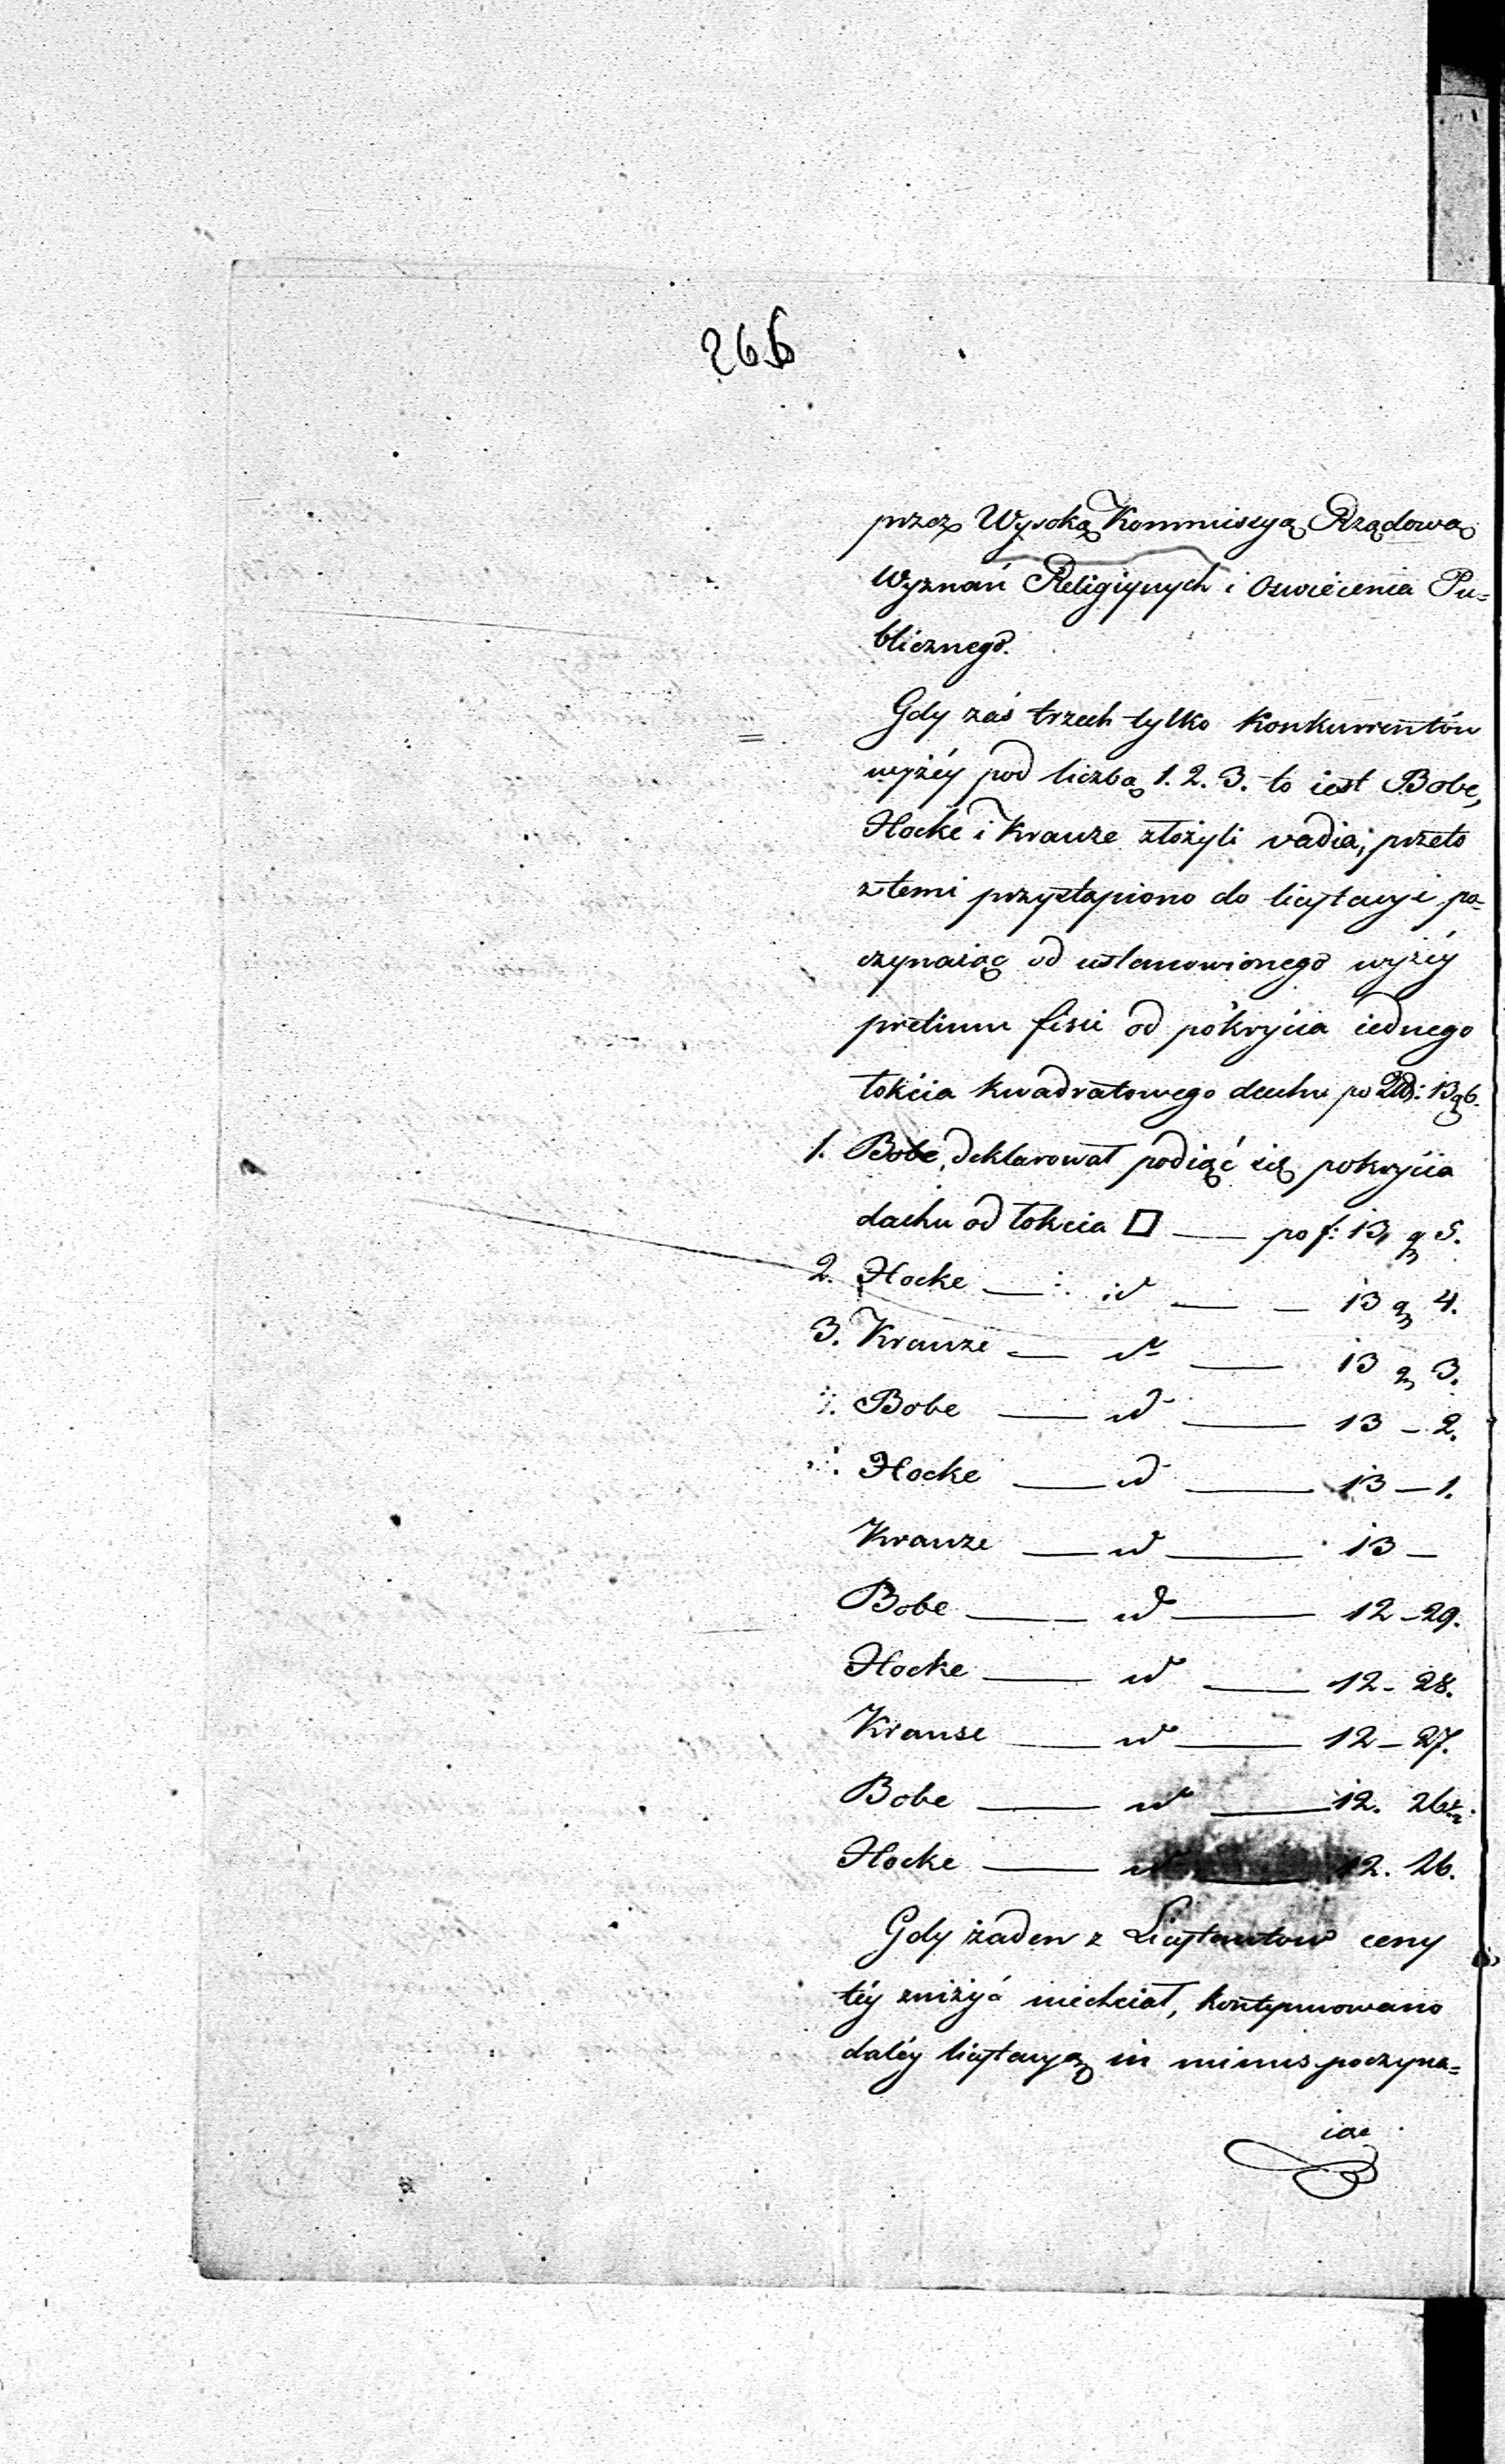 266
przez Wysoką Kommissyą Rządową
Wyznań Religiynych i Oswiecenia Pu=
blicznego.
Gdy zaś trzech tylko Konkurrentów
wyżéy pod liczbą 1. 2. 3. to iest Bobe,
Hocke i Krauze złożyli vadia, przeto
z temi przystąpiono do licytacyi po=
czynaiąc od ustanowionego wyżéy
pretium fisci od pokrycia iednego
łokcia kwadratowego dachu po Złt: 13 g 6.
1. Bobe, deklarował podiąć się pokrycia
dachu od łokcia □ — po f: 13, g 5.
2. Hocke — id — — 13 g 4.
3. Krauze — id — 13 g 3.
Bobe — id — 13 – 2.
Hocke — id — 13 — 1.
Krauze — id — 13 —
Bobe — id — 12 – 29.
Hocke — id — 12 – 28.
Krause — id — 12 – 27.
Bobe — id — 12. 26½.
Hocke — id — 12. 26.
Gdy żaden z Licytantow ceny
téy zniżyć niechciał, kontynuowano
daléy licytacyą in minus poczyna=
iac